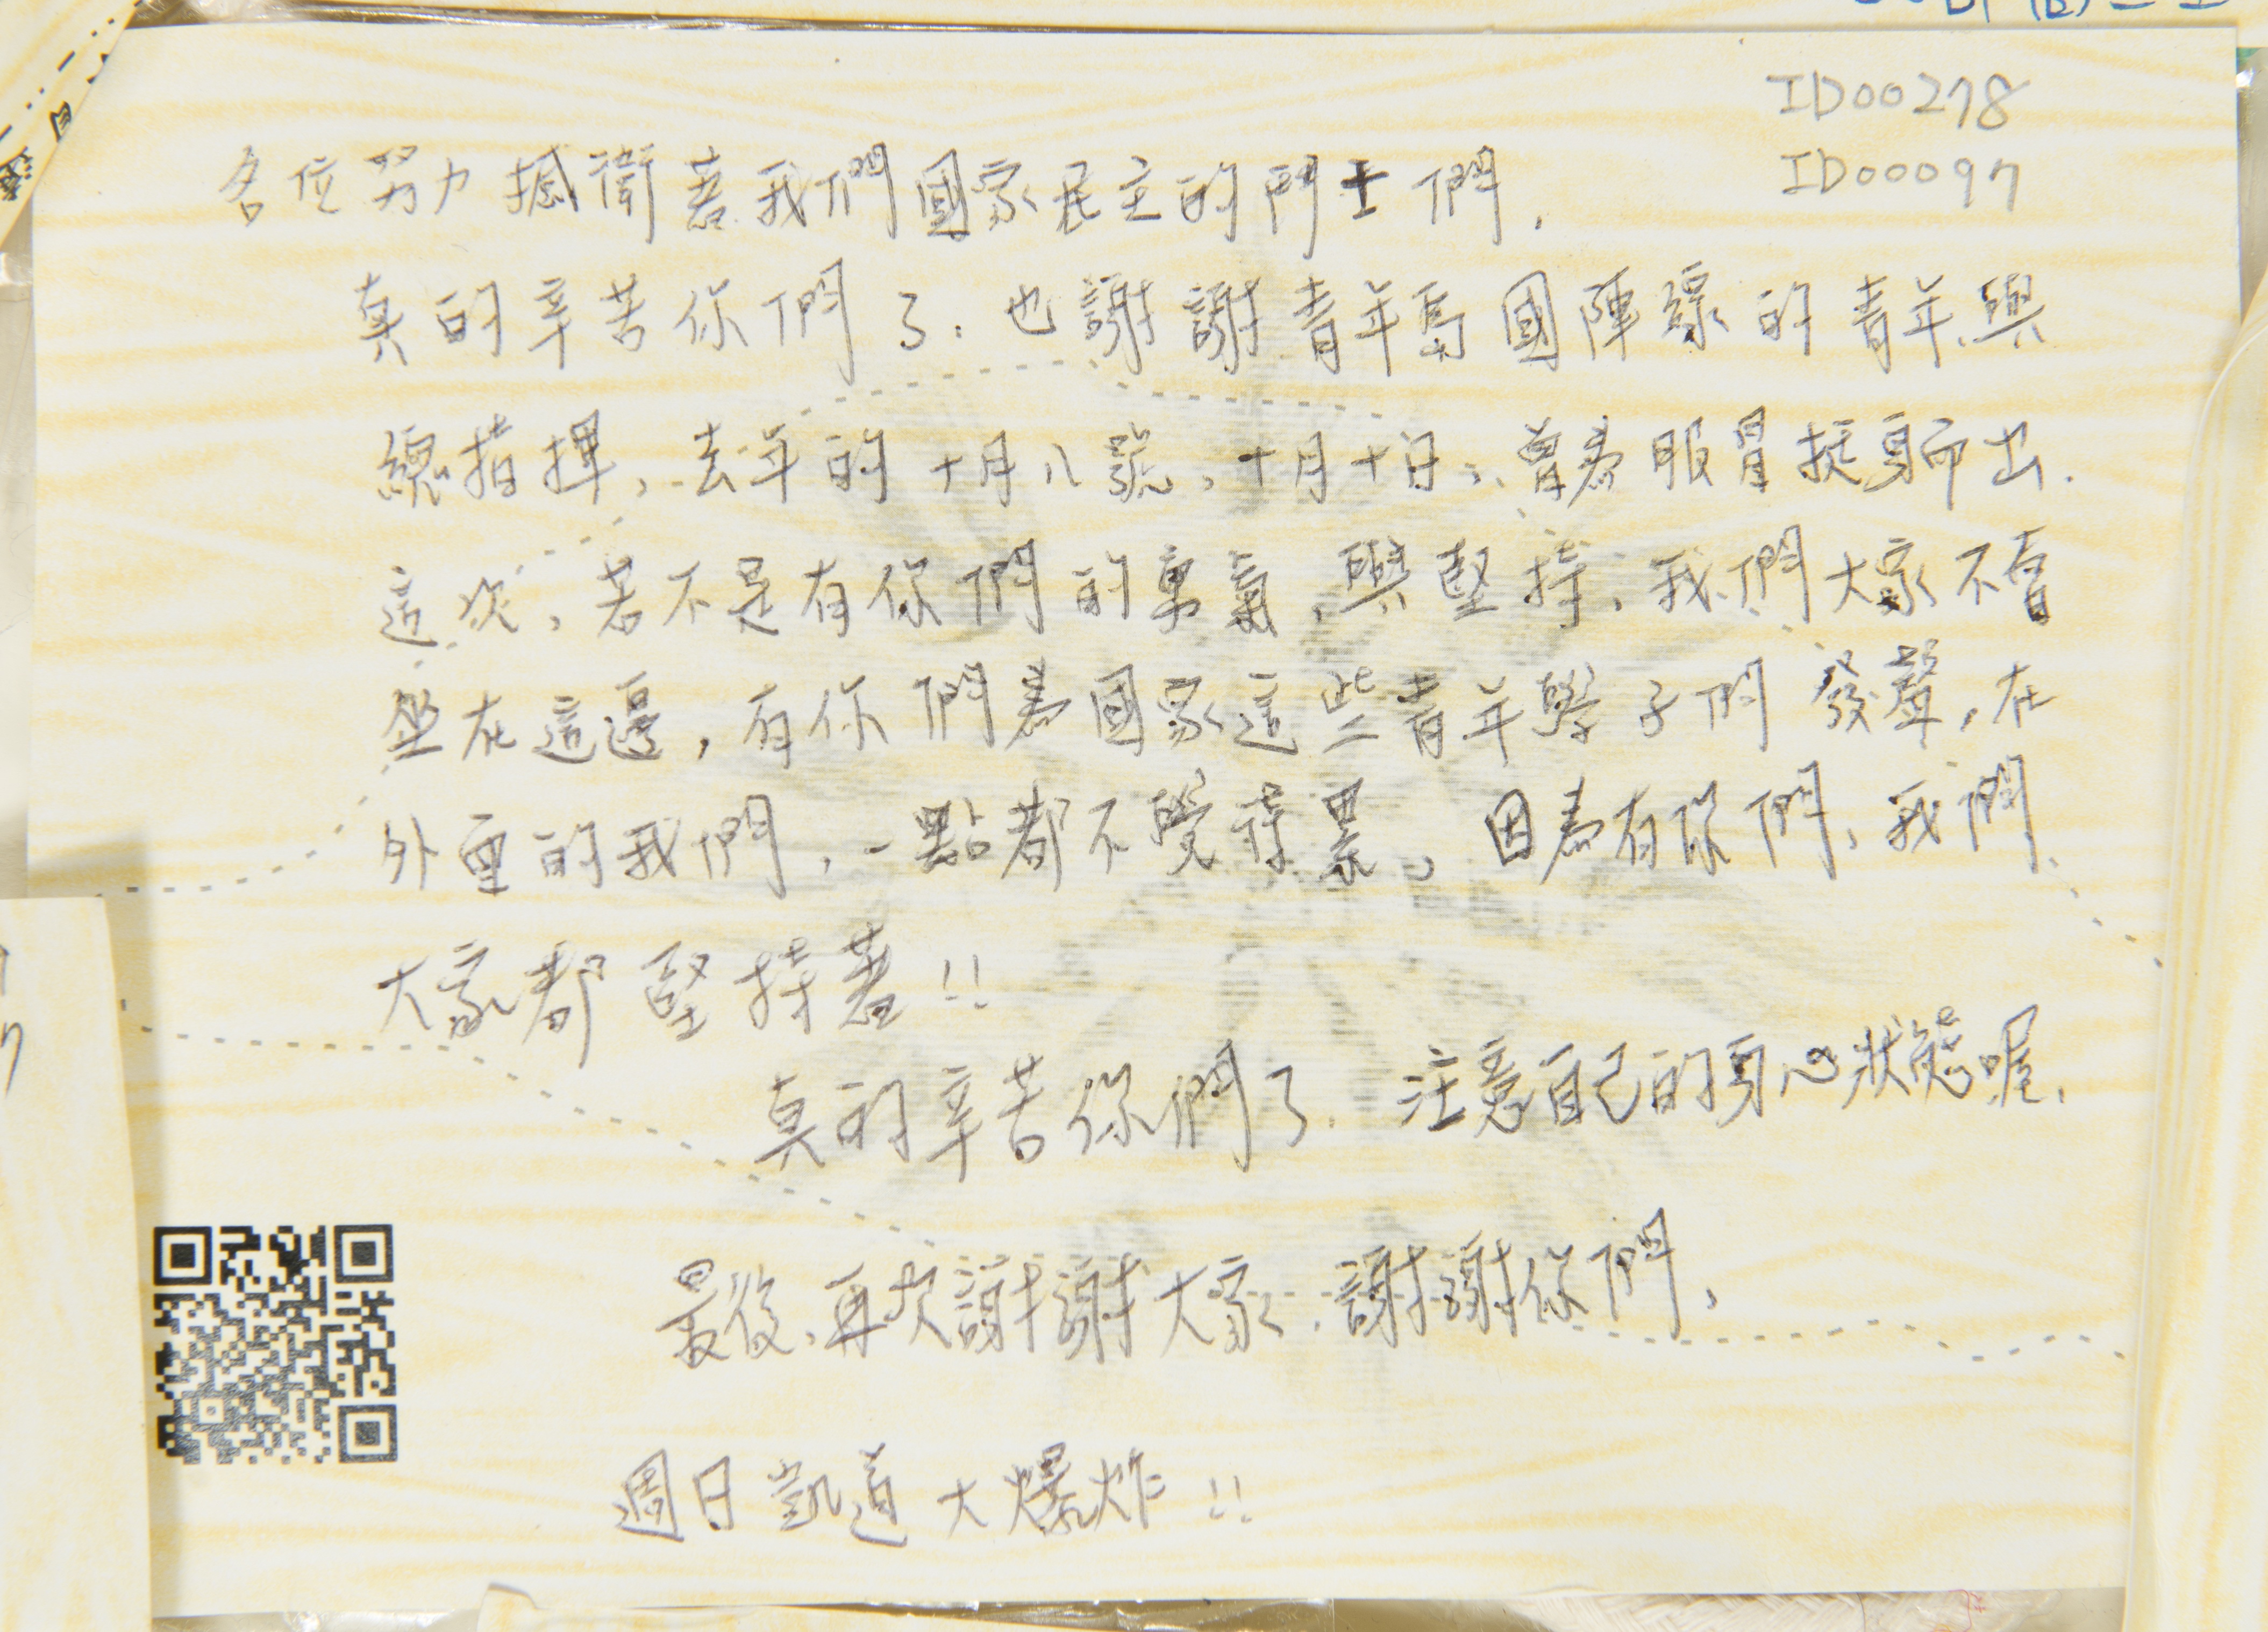 ID00278
ID00097
各位努力捍衛著我們國家民主的鬥士們,
真的辛苦你們了. 也謝謝青年焉國陣線的青年與
總指揮, 去年的十月八號, 十月十日, 曾為服貿挺身而出.
這次, 若不是有你們的勇氣, 與堅持, 我們大家不會
坐在這邊, 有你們為國家這些青年學子們發聲, 在
外面的我們, 一點都不覺得累, 因為有你們, 我們
大家都堅持著!!
真的辛苦你們了. 注意自己的身心狀態喔,
最後, 再次謝謝大家, 謝謝你們,
週日凱道大爆炸!!